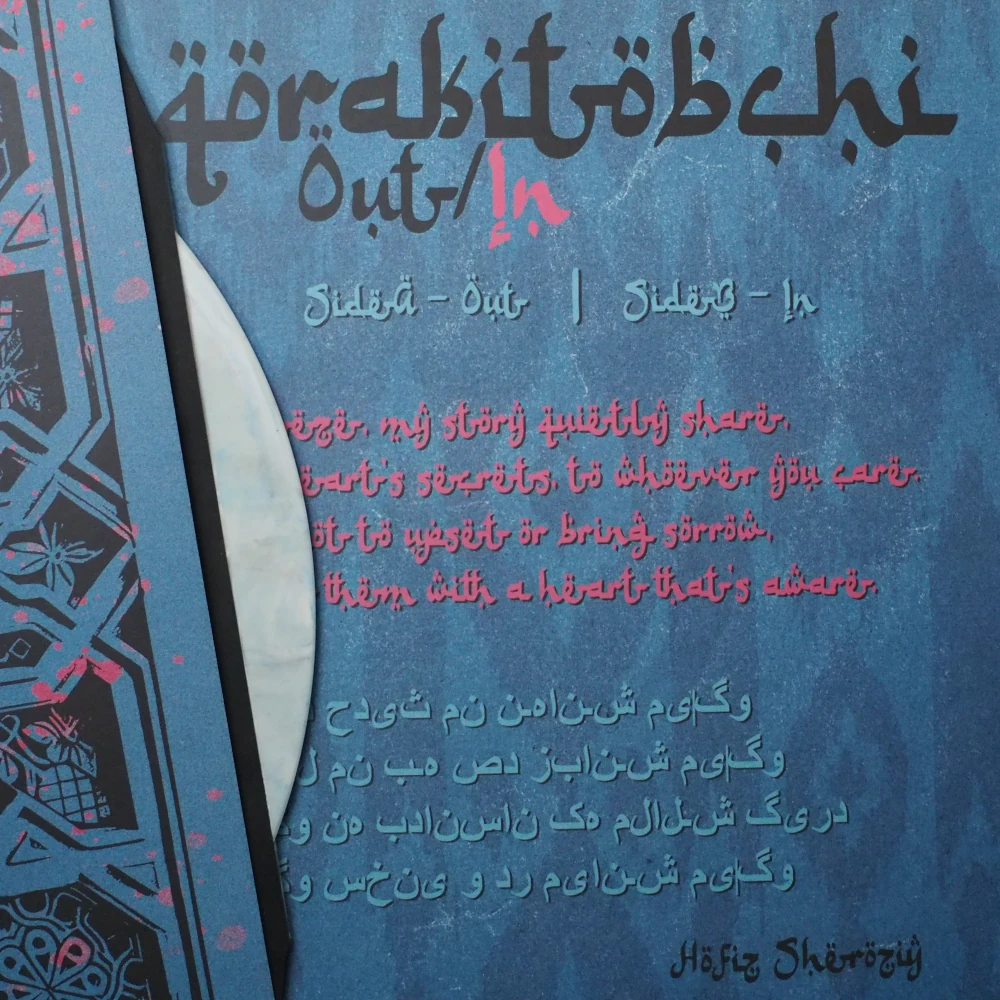 qorakitobchi
Out/In
SideA – Out | SideB – In
my story quietly share,
secrets, to whoever you care.
to upset or bring sorrow,
them with a heart that's aware.
وگ|یم شناهن نم ثیدح
وگ|یم شنابز دص هب نم
دریگ شلالم هک ناسنادب هن
وگ|یم شنایم رد و ینخس
Hofiz Sheroziy